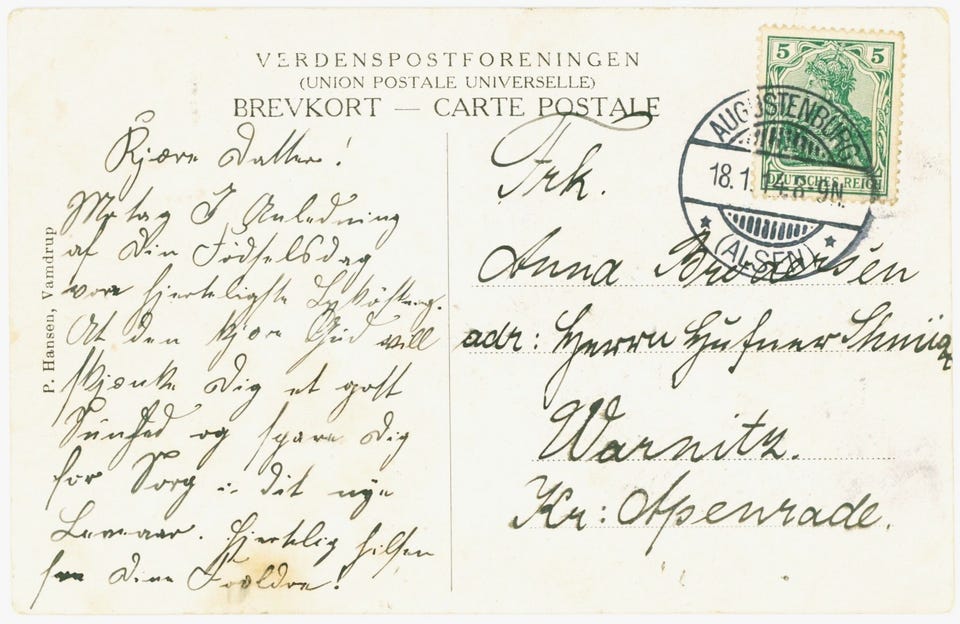 VERDENSPOSTFORENINGEN
(UNION POSTALE UNIVERSELLE)
BREVKORT — CARTE POSTALE
5 5
DEUTSCHES REICH
AUGUSTENBURG
18.1.14.8-9N.
(ALSEN)
P. Hansen, Vamdrup
Kjære Datter!
Motag I Anledning
af Din Födselsdag
vore hjerteligste Lykönskning.
At den kjære Gud will
skjænke Dig et gott
Sunhed og spare Dig
for Sorg i dit nye
Leveaar. Hjertelig hilsen
fra Dine Forældre!
Frk.
Anna Brodersen
adr: Herrn Hufner
Warnitz.
Kr: Apenrade.